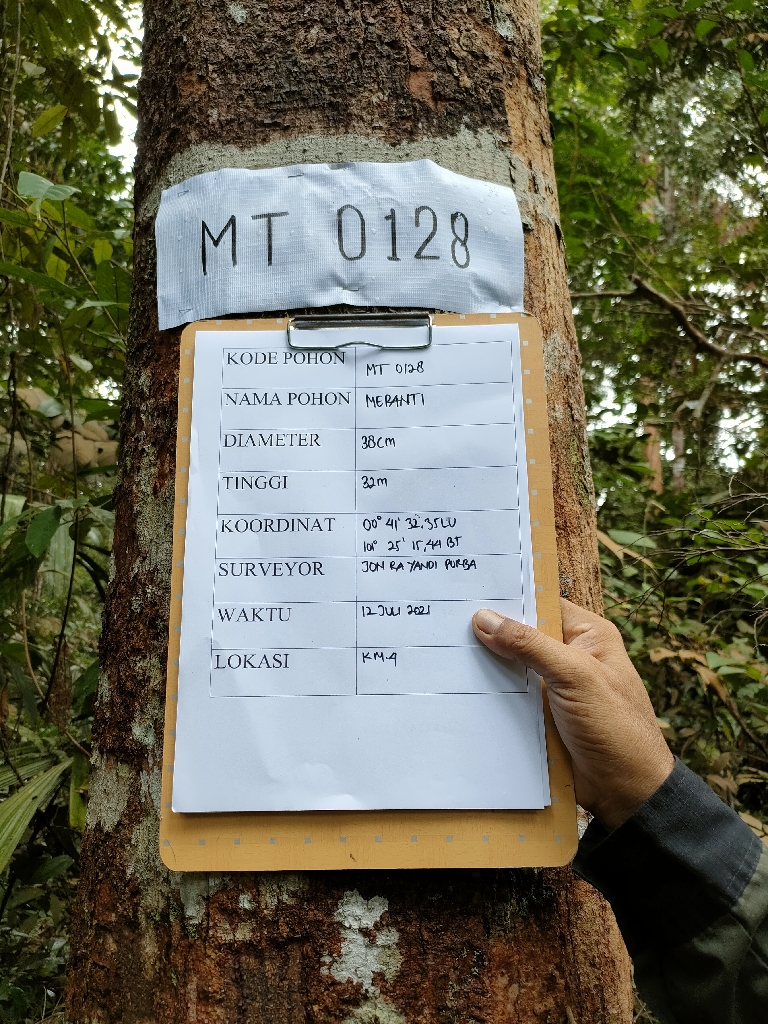 MT 0128
KODE POHON MT 0128
NAMA POHON MERANTI
DIAMETER 38cm
TINGGI 32m
KOORDINAT 00° 41' 32,35 LU
101° 25' 15,44 BT
SURVEYOR JON RA YANDI PURBA
WAKTU 12 JULI 2021
LOKASI KM.4